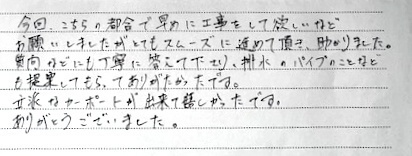 今回、こちらの都合で早めに工事をして欲しいなど
お願いしましたがとてもスムーズに進めて頂き、助かりました。
質問などにも丁寧に答えて下さり、排水のパイプのことなど
も提案してもらってありがたかったです。
立派なカーポートが出来て嬉しかったです。
ありがとうございました。